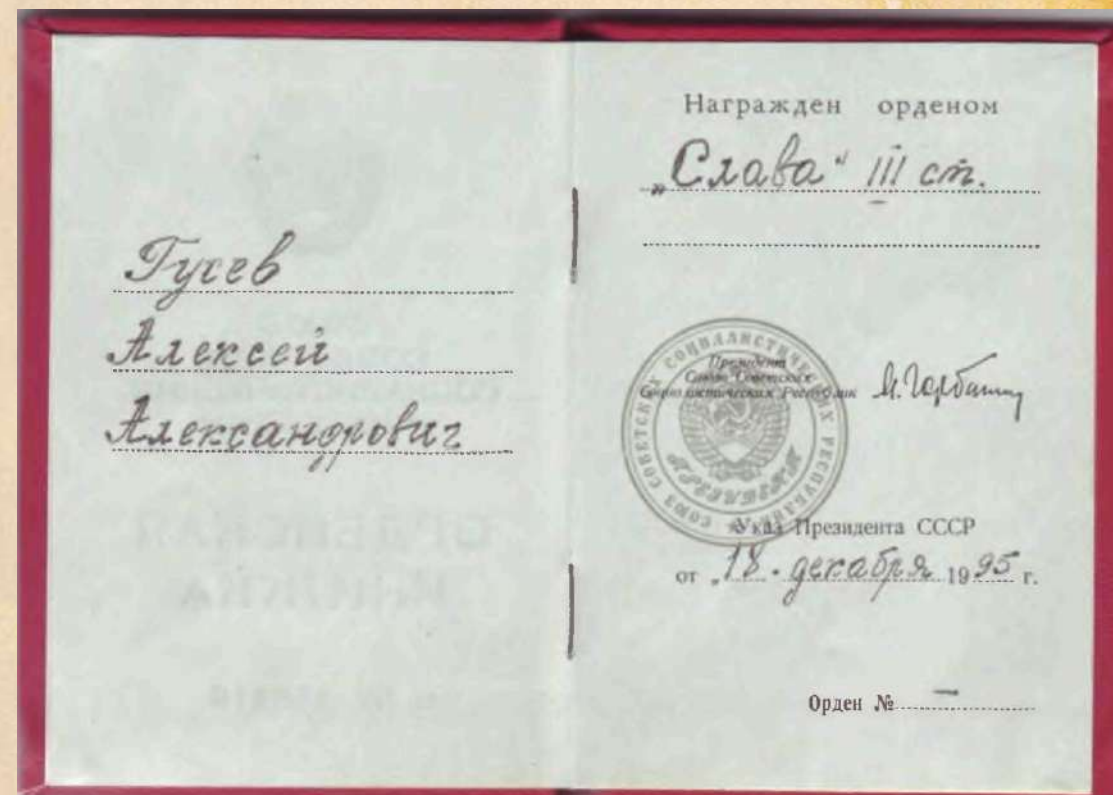 Гусев
Алексей
Александрович
Награжден орденом
„Слава“ III ст.
Президент
Союза Советских
Социалистических Республик М. Горбачев
СОЮЗ СОВЕТСКИХ СОЦИАЛИСТИЧЕСКИХ РЕСПУБЛИК
ПРЕЗИДЕНТ
Указ Президента СССР
от „18. декабря 1995 г.
Орден № –